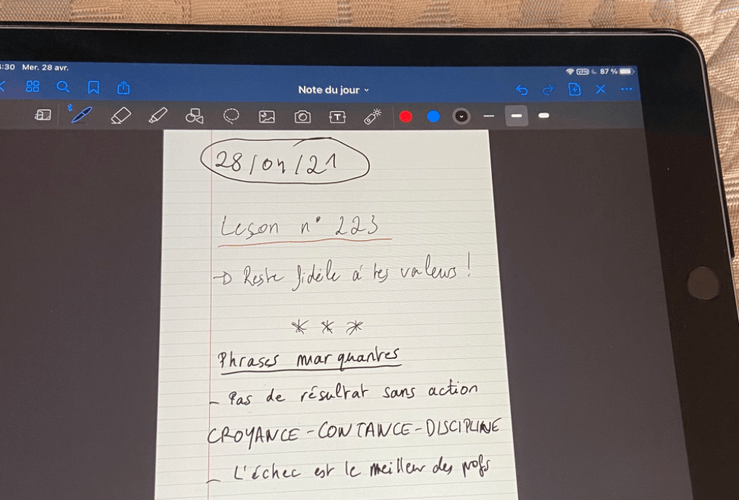 :30 Mer. 28 avr.
VPN 87 %
Note du jour
28/04/21
Leson n° 223
→ Reste fidèle à tes valeurs !
***
Phrases marquantes
- Pas de résultat sans action
CROYANCE-CONTANCE-DISCIPLINE
- L'échec est le meilleur des profs